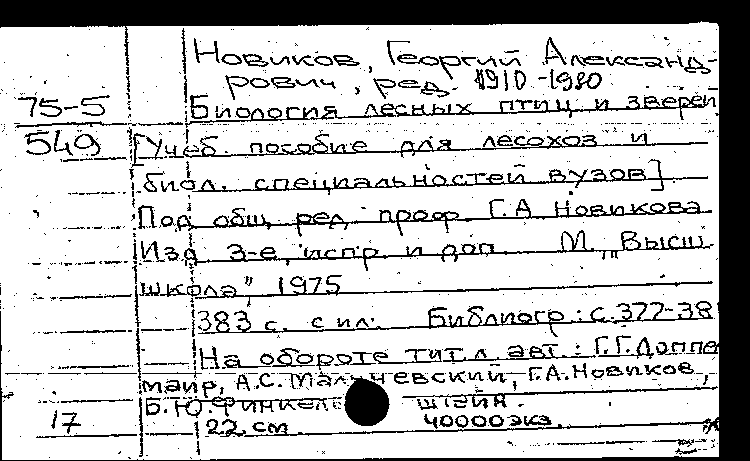 Новиков, Георгий Александ-
рович, ред. 1910-1980
75-5 Биология лесных птиц и зверей
549 [Учеб. пособие для лесохоз и
биол. специальностей вузов]
Под общ ред проф. Г.А Новикова
Изд 3-е, испр и доп. М., „Высш
школа", 1975
383 с. с ил. Библиогр: с. 377-38
На обороте тит.л авт.: Г.Г.Доппе
маир, А.С. Мальчевский, Г.А.Новиков,
Б.Ю.Финкельштайн.
17 22 см 40000экз.